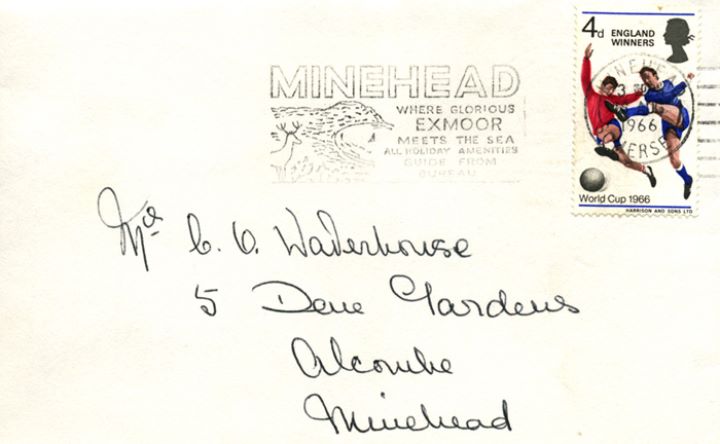 4d ENGLAND
WINNERS
MINEHEAD
WHERE GLORIOUS
EXMOOR
MEETS THE SEA
ALL HOLIDAY AMENITIES
GUIDE FROM
BUREAU
MINEHEAD
1966
World Cup 1966
HARRISON AND SONS LTD
C. V. Waterhouse
5 Dene Gardens
Alcombe
Minehead